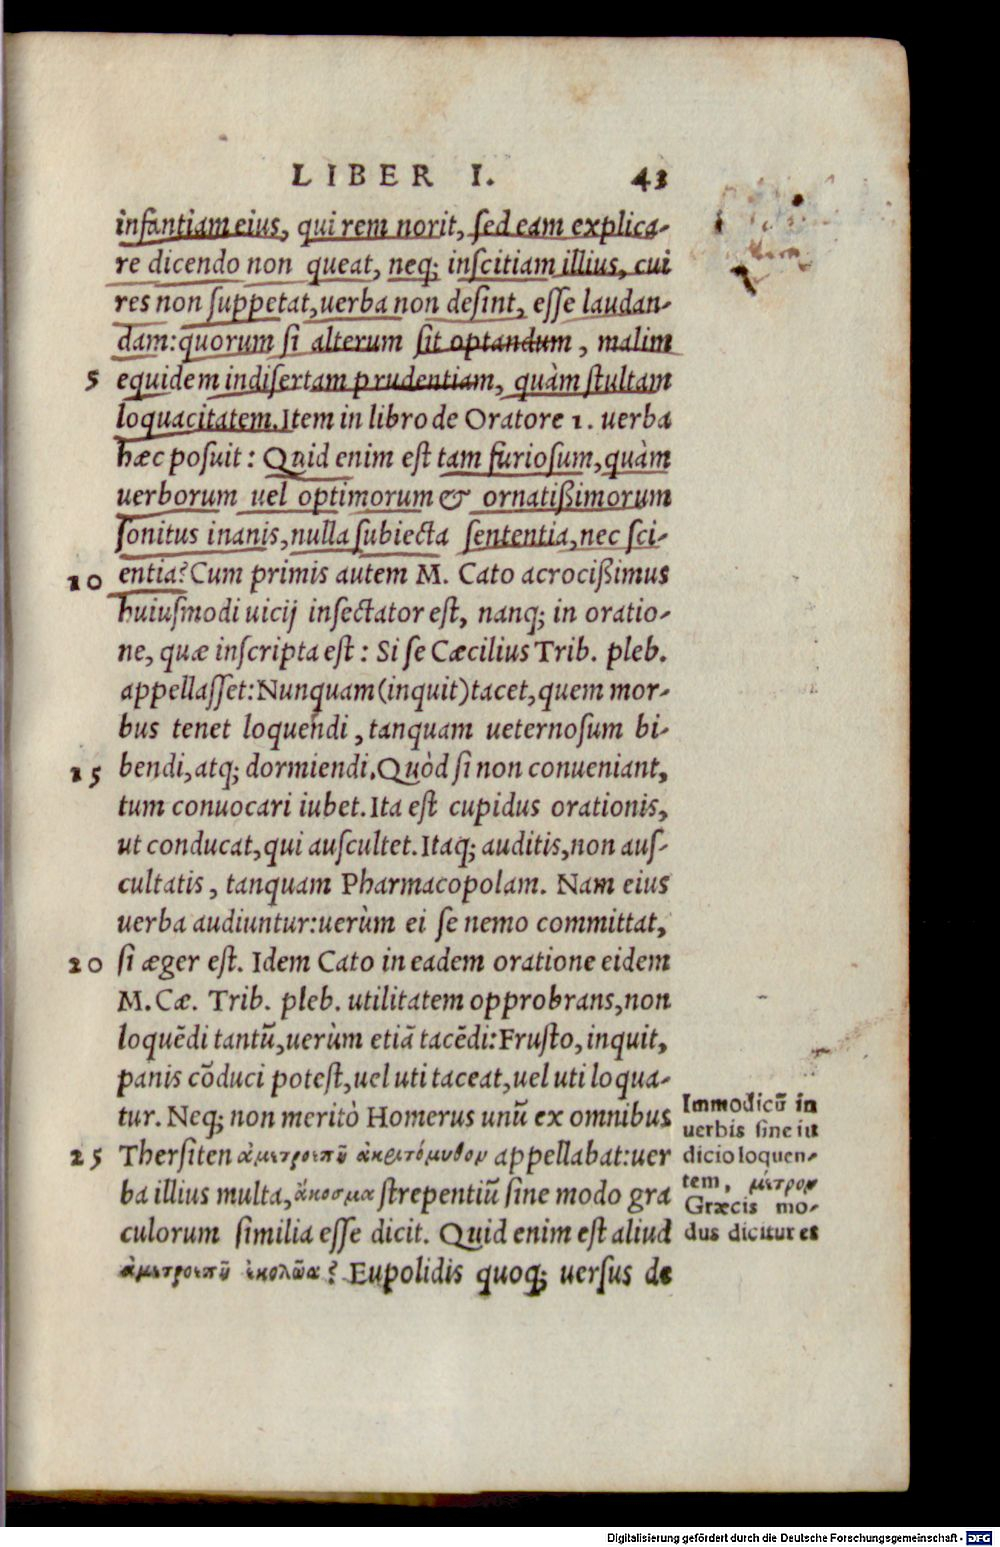 LIBER I. 43
infantiam eius, qui rem norit, sed eam explica-
re dicendo non queat, neq; inscitiam illius, cui
res non suppetat, uerba non desint, esse laudan-
dam: quorum si alterum sit optandum, malim
5 equidem indisertam prudentiam, quàm stultam
loquacitatem. Item in libro de Oratore 1. uerba
hæc posuit: Quid enim est tam furiosum, quàm
uerborum uel optimorum & ornatißimorum
sonitus inanis, nulla subiecta sententia, nec sci-
10 entia? Cum primis autem M. Cato acrocißimus
huiusmodi uicij insectator est, nanq; in oratio-
ne, quæ inscripta est: Si se Cæcilius Trib. pleb.
appellasset: Nunquam (inquit) tacet, quem mor-
bus tenet loquendi, tanquam ueternosum bi-
15 bendi, atq; dormiendi. Quòd si non conueniant,
tum conuocari iubet. Ita est cupidus orationis,
ut conducat, qui auscultet. Itaq; auditis, non aus-
cultatis, tanquam Pharmacopolam. Nam eius
uerba audiuntur: uerùm ei se nemo committat,
20 si æger est. Idem Cato in eadem oratione eidem
M. Cæ. Trib. pleb. utilitatem opprobrans, non
loquēdi tantū, uerùm etiā tacēdi: Frusto, inquit,
panis cōduci potest, uel uti taceat, uel uti loqua-
tur. Neq; non meritò Homerus unū ex omnibus
25 Thersiten ἀμετροεπῆ ἀκριτόμυθον appellabat: uer
ba illius multa, ἄκοσμα strepentiū sine modo gra
culorum similia esse dicit. Quid enim est aliud
ἀμετροεπῆ ἐκολῴα? Eupolidis quoq; uersus de
Immodicū in
uerbis sine iu
dicio loquen-
tem, μέτρον
Græcis mo-
dus dicitur es
Digitalisierung gefördert durch die Deutsche Forschungsgemeinschaft - DFG